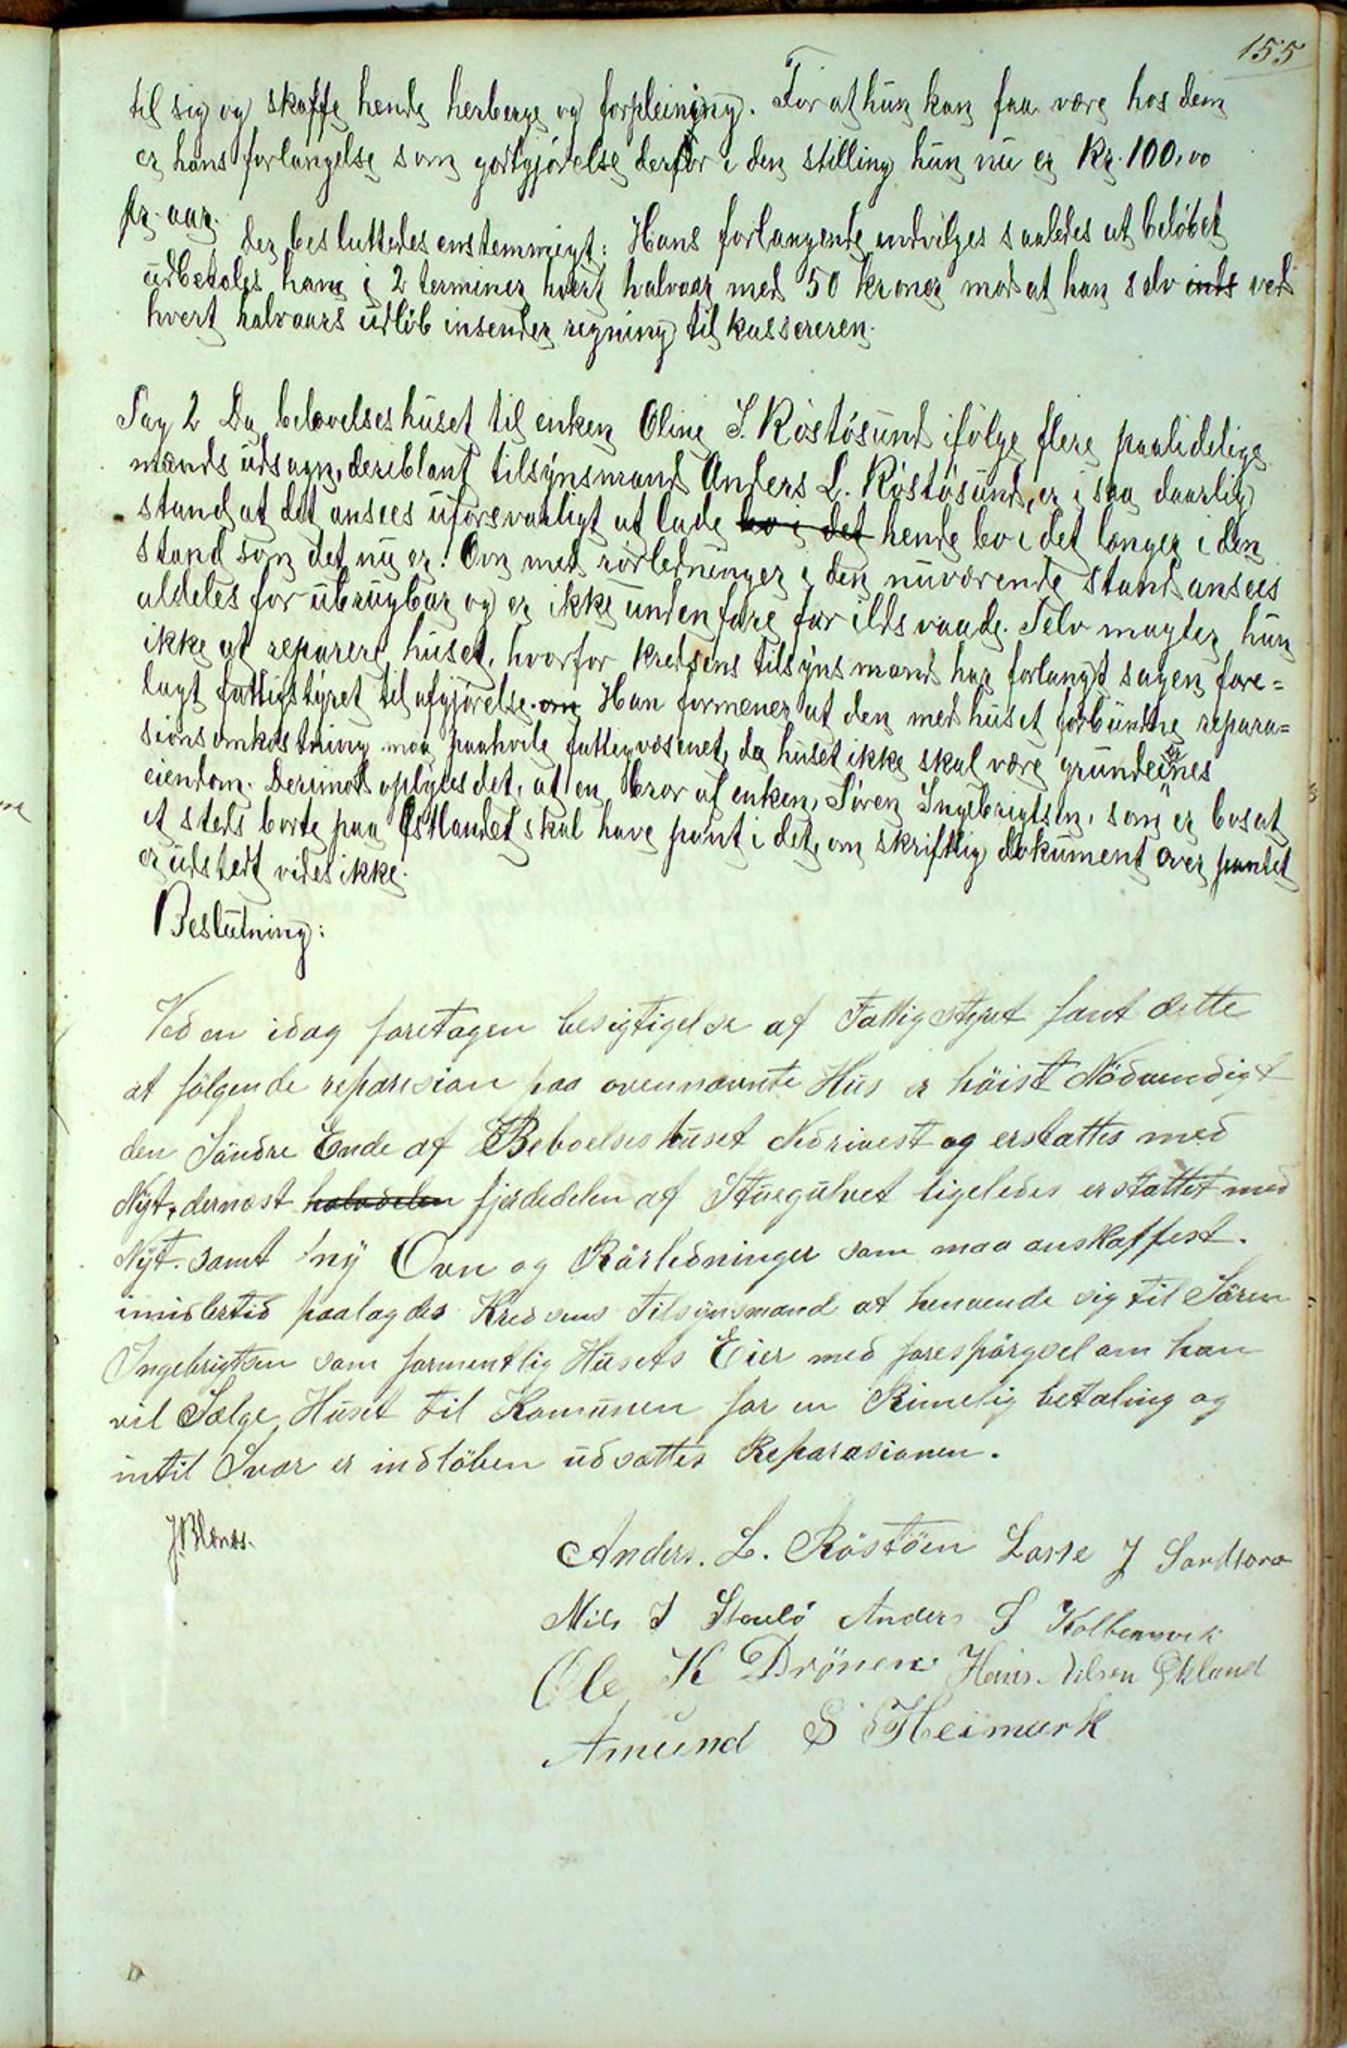 155
til sig og skaffe hende herberge og forpleining. For at hun kan faa være hos dem
er hans forlangelse som godtgjørelse derfor i den stilling hun nu er kr. 100,00
pr. aar.
Der besluttedes enstemmigt: Hans forlangende indvilges saaledes at beløbet
udbetales ham i 2 terminer hvert halvaar med 50 kroner mod at han selv inds ved
hvert halvaars udløb insender regning til kassereren.
Sag 2 Da beboelseshuset til enken Oline S. Røstøsund ifølge flere paalidelige
mænds udsagn, deriblant tilsynsmand Anders L. Røstøsund, er i saa daarlig
stand at det ansees uforsvarligt at lade bo i det hende bo i det længer i den
stand som det nu er. Ovn med rørledninger i den nuværende stand ansees
aldeles for ubrugbar og er ikke unden fare for ildsvaade. Selv magter hun
ikke at reparere huset, hvorfor kredsens tilsynsmand har forlangt sagen fore=
lagt fattigstyret til afgjørelse. om Han formener at den med huset forbundne repara=
sionsomkostning maa paahvile fattigvæsenet, da huset ikke skal være grundeiernes
eiendom. Derimod oplyses det, at en bror af enken, Søren Ingebrigtsen, som er bosat
et steds borte paa Østlandet skal have pant i det, om skriftlig dokument over pantet
er udstedt vides ikke.
Beslutning:
Ved en idag foretagen besigtigelse af Fattigstyret fant dette
at følgende reparasion paa ovennævnte Hus er høist Nødvendigt
den Søndre Ende af Beboelseshuset Nedrivest og erstattes med
Nyt, dernæst halvdelen fjerdedelen af Stuegulvet ligeledes erstattet med
Nyt. samt 1 ny Ovn og Rørledninger som maa anskaffest.
imidlertid paalagdes Kredsens Tilsynsmand at henvende sig til Søren
Ingebrigtsen som formentlig Husets Eier med forespørgsel om han
vil Sælge Huset til Komunen for en Rimelig betaling og
intil Svar er indløben udsættes Reparasionen.
J. Blænes.
Anders. L. Røstøen Lasse J Sandtorv
Nils J Stavlø Anders S Kolbensvik
Ole K Drønen Hans Nilsen Økland
Amund S Heimark